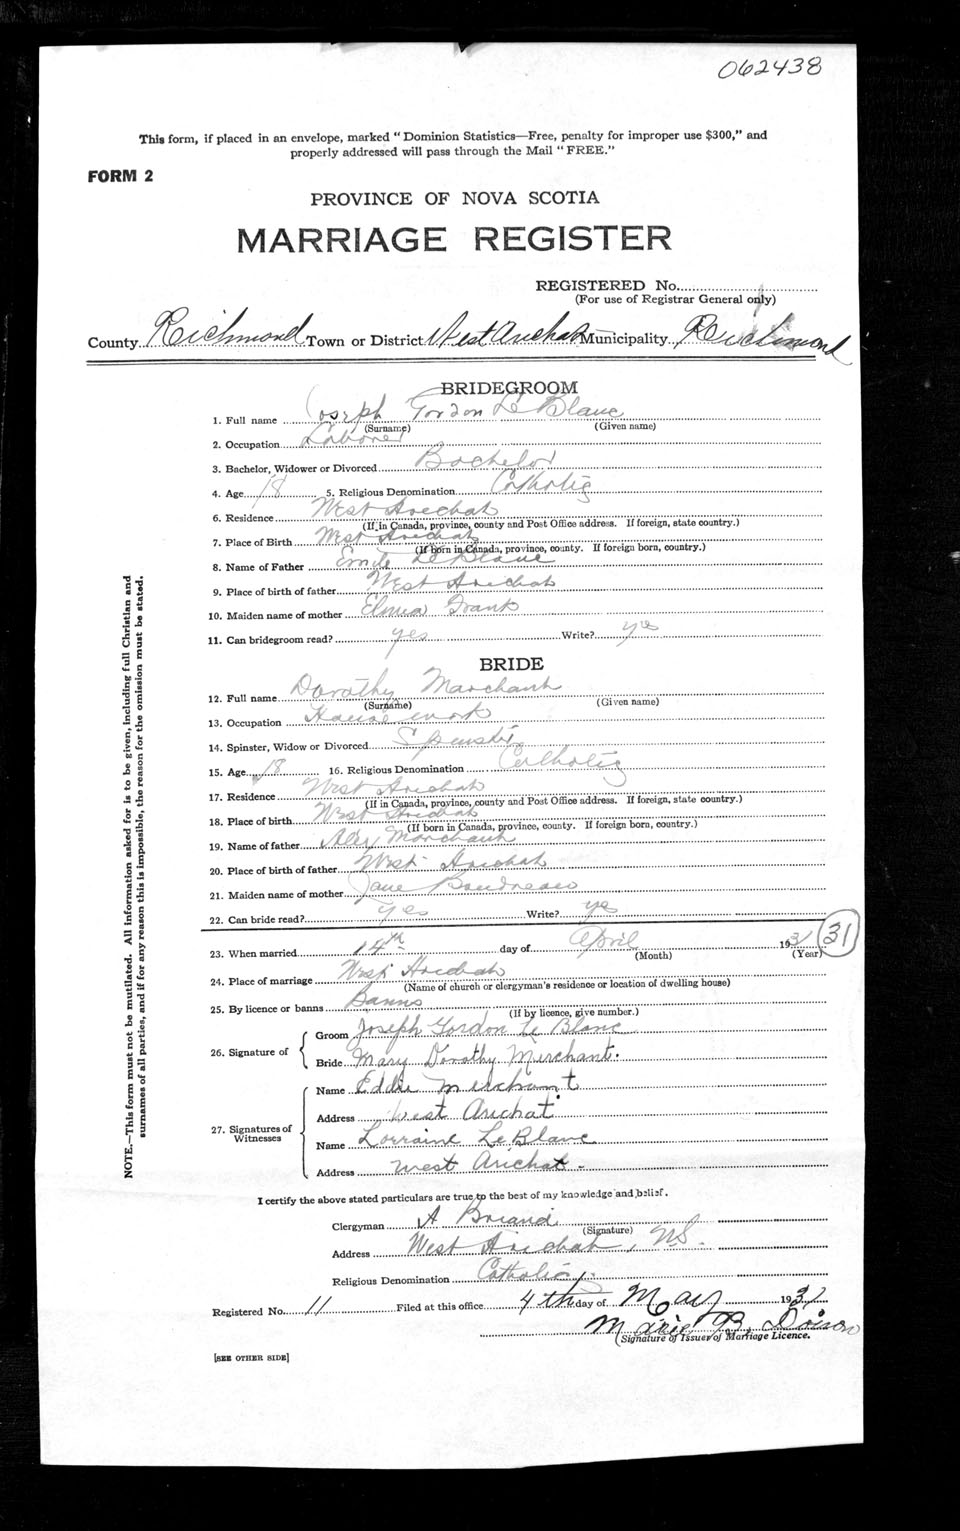 062438
This form, if placed in an envelope, marked "Dominion Statistics—Free, penalty for improper use $300," and
properly addressed will pass through the Mail "FREE."
FORM 2
PROVINCE OF NOVA SCOTIA
MARRIAGE REGISTER
REGISTERED No.
(For use of Registrar General only)
County Richmond Town or District West Arichat Municipality Richmond
BRIDEGROOM
1. Full name Joseph Gordon Le Blanc
(Surname) (Given name)
2. Occupation Laborer
3. Bachelor, Widower or Divorced Bachelor
4. Age 18 5. Religious Denomination Catholic
6. Residence West Arichat
(If in Canada, province, county and Post Office address. If foreign, state country.)
7. Place of Birth West Arichat
(If born in Canada, province, county. If foreign born, country.)
8. Name of Father Emile Le Blanc
9. Place of birth of father West Arichat
10. Maiden name of mother Frank
11. Can bridegroom read? yes Write? yes
BRIDE
12. Full name Dorothy Marchant
(Surname) (Given name)
13. Occupation House work
14. Spinster, Widow or Divorced Spinster
15. Age 18 16. Religious Denomination Catholic
17. Residence West Arichat
(If in Canada, province, county and Post Office address. If foreign, state country.)
18. Place of birth West Arichat
(If born in Canada, province, county. If foreign born, country.)
19. Name of father Alex Marchant
20. Place of birth of father West Arichat
21. Maiden name of mother Jane Boudreau
22. Can bride read? yes Write? yes
23. When married 14th day of April 1931 (31)
(Month) (Year)
24. Place of marriage West Arichat
(Name of church or clergyman's residence or location of dwelling house)
25. By licence or banns Banns
(If by licence, give number.)
26. Signature of
Groom Joseph Gordon Le Blanc
Bride Mary Dorothy Merchant.
27. Signatures of Witnesses
Name Eddie Merchant
Address West Arichat
Name Lorraine LeBlanc
Address West Arichat -
I certify the above stated particulars are true to the best of my knowledge and belief.
Clergyman A Briand
(Signature)
Address West Arichat, NS.
Religious Denomination Catholic
Registered No. 11 Filed at this office 4th day of May 1931
Marie B. Doiron
(Signature of Issuer of Marriage Licence.
[SEE OTHER SIDE]
NOTE.—This form must not be mutilated. All information asked for is to be given, including full Christian and
surnames of all parties, and if for any reason this is impossible, the reason for the omission must be stated.